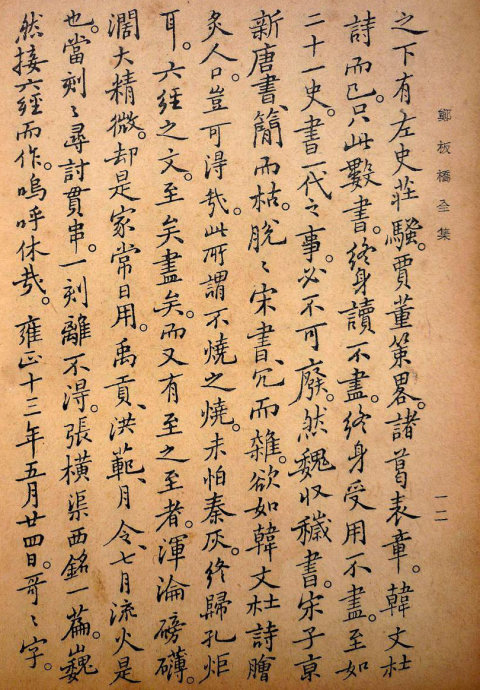 鄭板橋全集
一二
之下有左史莊騷。賈董策畧。諸葛表章。韓文杜
詩而已。只此數書。終身讀不盡。終身受用不盡。至如
二十一史。書一代之事。必不可廢。然魏收穢書。宋子京
新唐書、簡而枯。脫〻宋書、冗而雜。欲如韓文杜詩膾
炙人口。豈可得哉。此所謂不燒之燒。未怕秦灰。終歸孔炬
耳。六經之文。至矣盡矣。而又有至之至者。渾淪磅礴。
濶大精微。却是家常日用。禹貢、洪範、月令、七月流火是
也。當刻〻尋討貫串。一刻離不得。張橫渠西銘一篇。巍
然接六經而作。嗚呼休哉。雍正十三年五月廿四日。哥〻字。